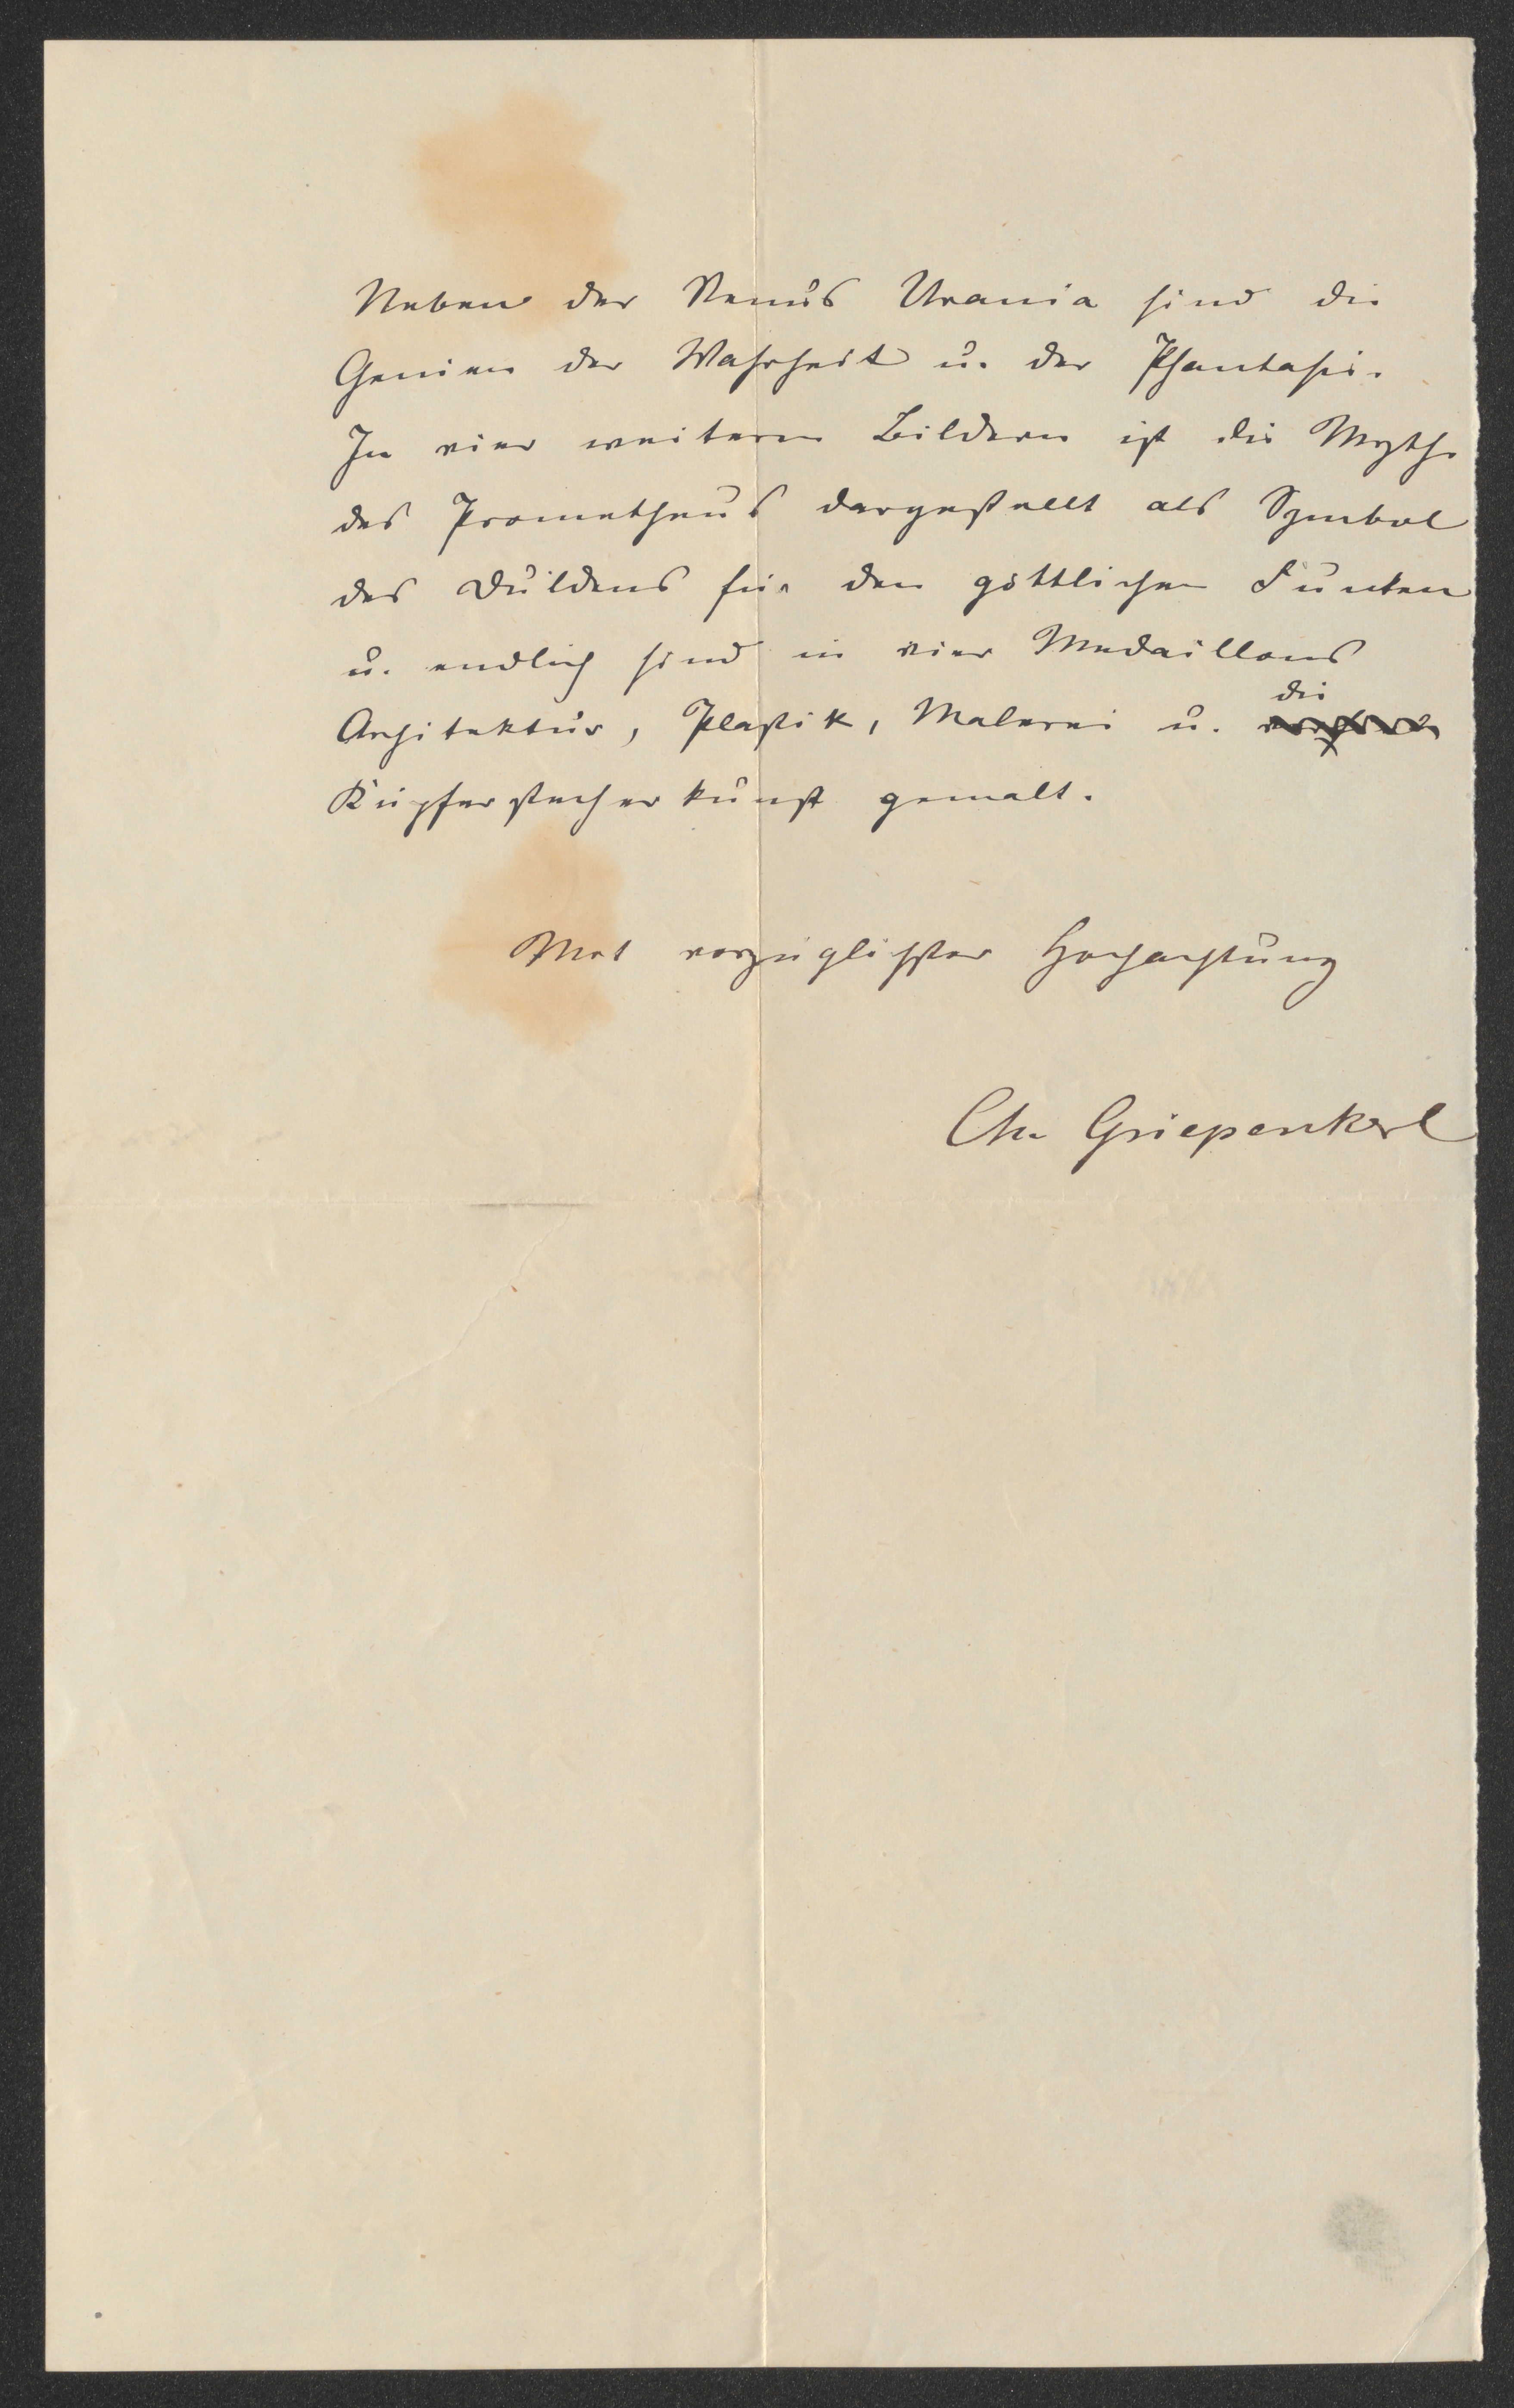 Neben der Venus Urania sind die
Genien der Wahrheit u. der Phantasie.
In vier weiteren Bildern ist die Mythe
des Prometheus dargestellt als Symbol
des Duldens für den göttlichen Funken
u. endlich sind in vier Medaillons
die
Architektur, Plastik, Malerei u.
Kupferstecherkunst gemalt.
Mit vorzüglichster Hochachtung
Chr Griepenkerl